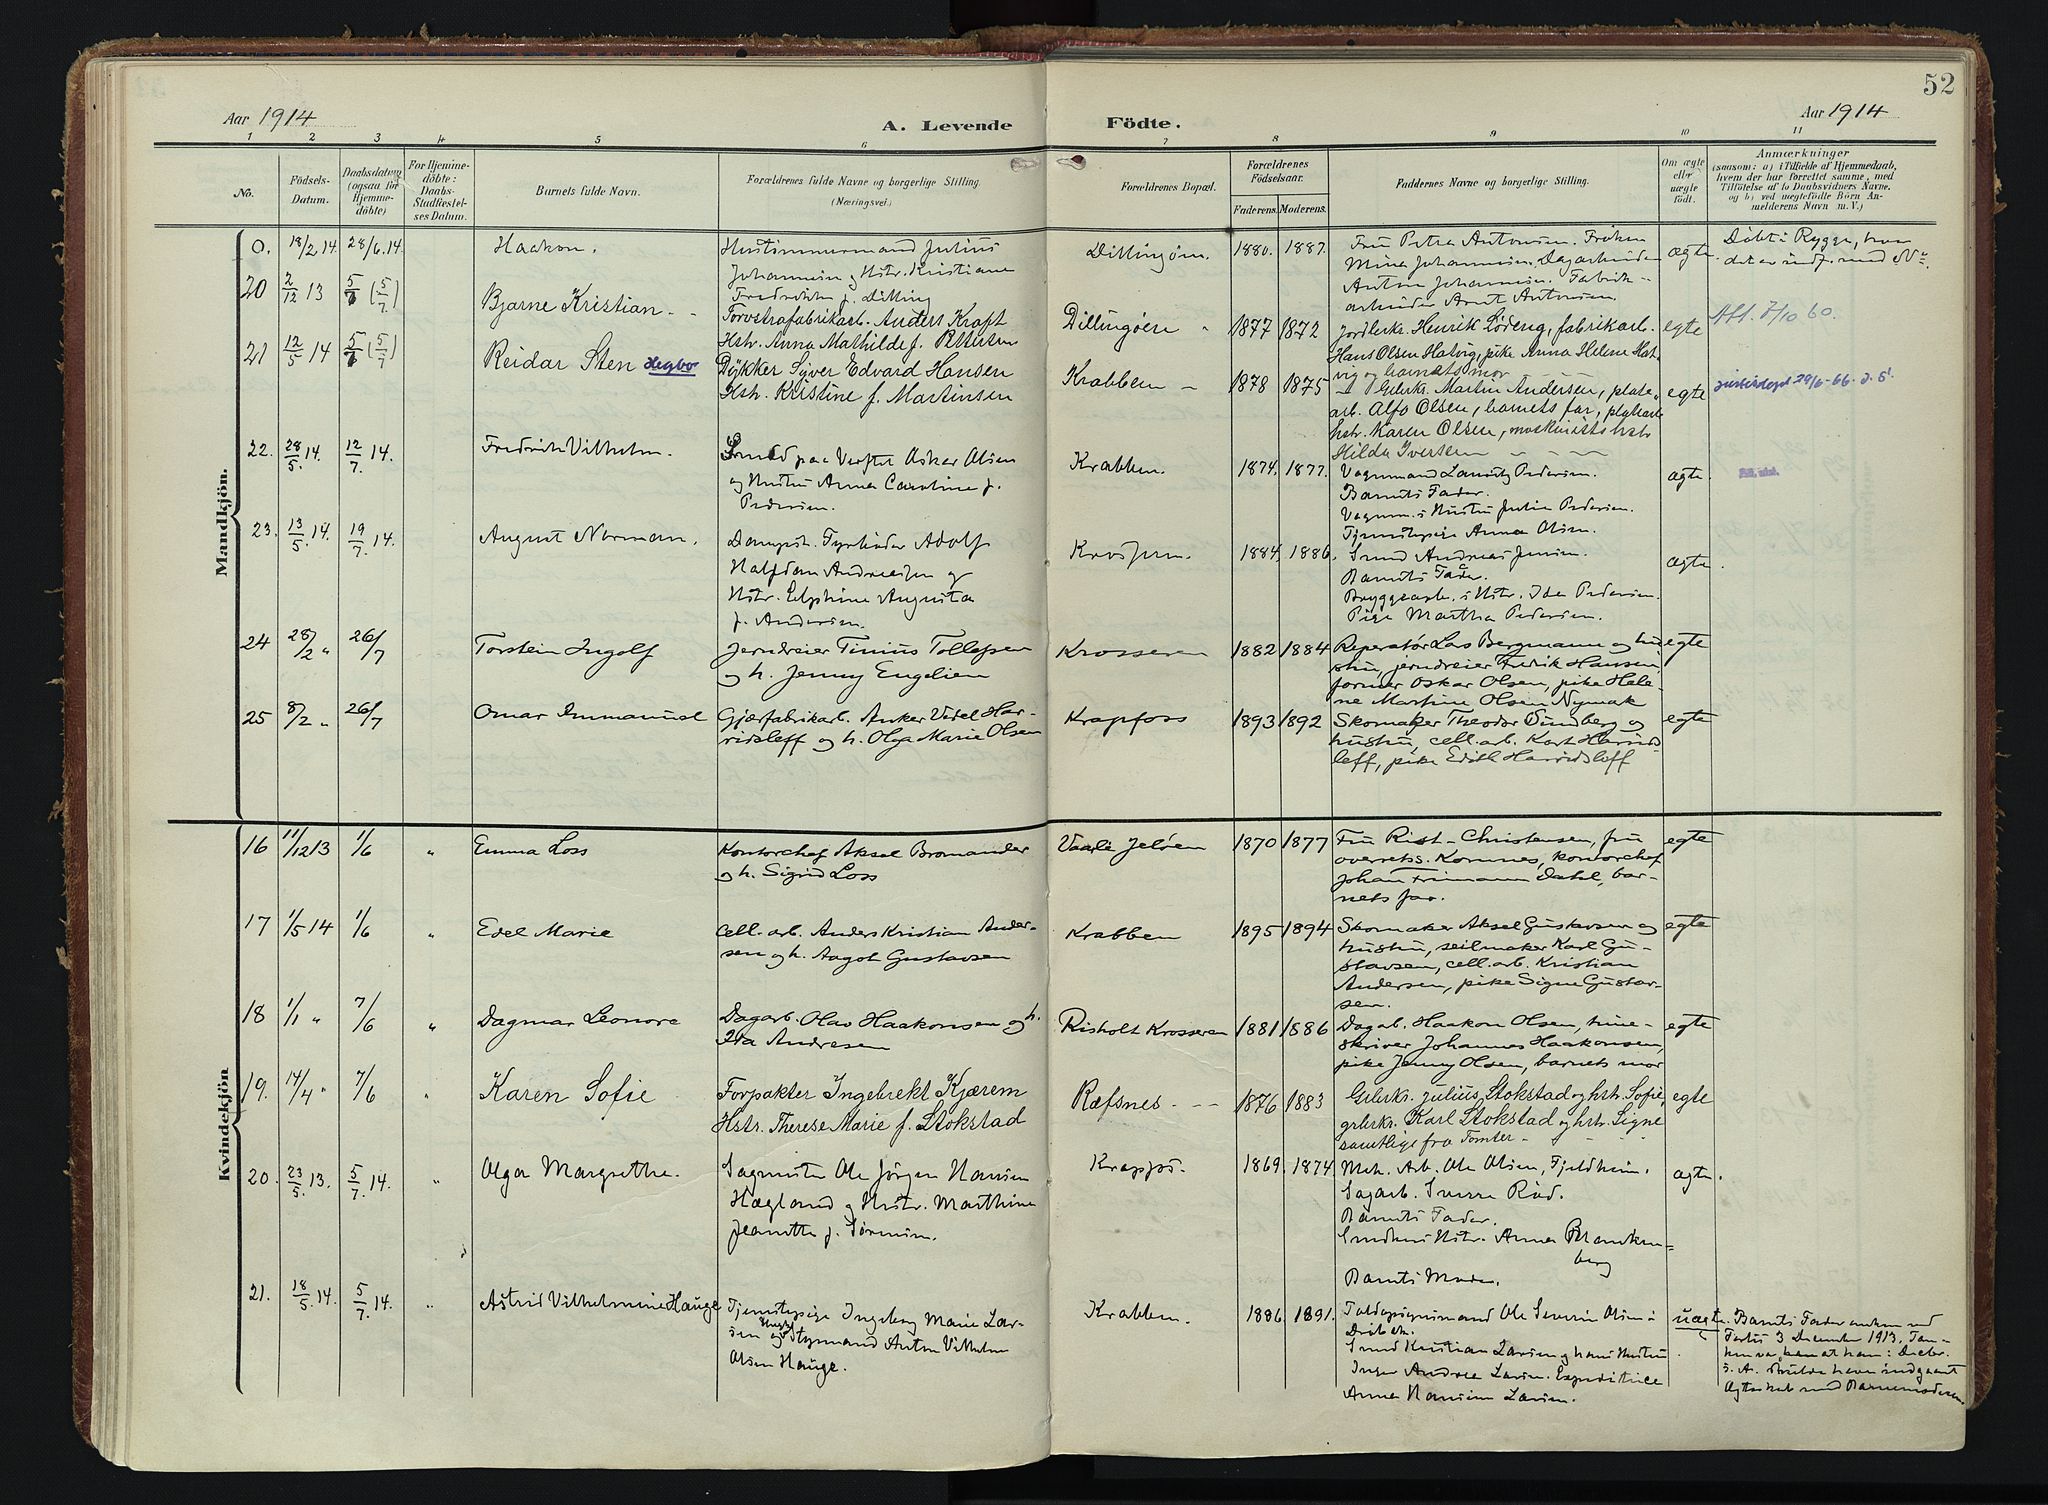 52
Aar 1914
A. Levende Födte.
Aar 1914
1 2 3 4 5 6 7 8 9 10 11
No.
Födsels-Datum.
Daabsdatum (ogsaa for Hjemmedöbte)
For Hjemmedöbte: Daabs-Stadfestelses Datum.
Barnets fulde Navn.
Forældrenes fulde Navne og borgerlige Stilling. (Næringsvei.)
Forældrenes Bopæl.
Forældrenes Födselsaar. Faderens. Moderens.
Faddernes Navne og borgerlige Stilling.
Om ægte eller uægte födt.
Anmærkninger
(saasom: a) i Tilfælde af Hjemmedaab, hvem der har forrettet samme, med Tilföielse af to Daabsvidners Navne, og b) ved uegtefödte Börn Anmelderens Navn m. V.)
Mandkjön.
0. 18/2 14. 28/6. 14. Haakon. Hustimmermand Julius
Johannesen og Hstr. Kristiane
Fredrikke f. Dilling
Dillingøen. 1880. 1887. Fru Petra Antonsen. Frøken
Mina Johannesen. Dagarbeider
Anton Johannesen. Fabrik-
arbeider Arnt Antonsen.
ægte. Døbt i Rygge, hvor
det er indf. med No.
20 2/12 13 5/7 (5/7) Bjarne Kristian - - Torvstrøfabrikarb. Anders Kraft
Hstr. Anna Mathilde f. Pettersen
Dillingøen - 1877 1872 Jordbrkr. Henrik Løderug, fabrikarb.
Hans Olsen Hatvig, pike Anna Helene Hat-
vig og barnets mor
egte 7/10 60.
21 12/5 14 5/7 (5/7) Reidar Sten Degbo Dykker Syver Edvard Hansen
Hstr. Kristine f. Martinsen
Krabben - 1878 1875 Grbrkr. Martin Andersen, plate-
arb. Alfo Olsen, barnets far,
hstr. Karen Olsen, maskinists hstr.
Hilda Iversen
egte 29/6-66.
22. 28/5. 14. 12/7. 14. Fredrik Vilhelm. Smed paa Verftet Oskar Olsen
og Hustru Anna Caroline f.
Pedersen.
Krabben. 1874. 1877. Vognmand Lauritz Pedersen.
Barnets Fader.
Vognm.s Hustru Julie Pedersen.
Tjenestepige Anna Olsen.
ægte.
23. 13/5. 14. 19/7. 14. August Norman. Dampsk. Fyrbøder Adolf
Halfdan Andreassen og
Hstr. Elphine Augusta
f. Andersen.
Krosseren. 1884. 1886. Smed Andreas Jensen.
Barnets Fader.
Bryggearb.s Hstr. Ida Pedersen.
Pige Martha Pedersen.
ægte.
24 28/2 " 26/7 Torstein Ingolf Jerndreier Tinius Tollefsen
og h. Jenny Engelien
Krosseren 1882 1884 Reperatør Lars Bergmann og hu-
stru, jerndreier Fredik Hansen,
former Oskar Olsen, pike Hele-
ne Martine Olsen Nymak
egte
25 8/2 " 26/7 Omar Immanuel Gjærfabrikarb. Anker Vedel Har-
ridsleff og h. Olga Marie Olsen
Krapfoss 1893 1892 Skomaker Theodor Sundberg og
hustru, cell. arb. Karl Harrids-
leff, pike Edith Harridsleff
egte
Kvindekjön
16 11/12 13 1/6 " Emma Loss Kontorchef Aksel Bromander
og h. Sigrid Loss
Vaarli Jeløen 1870 1877 Fru Rist-Christensen, fru
overretss. Komnes, kontorchef
Johan Friimann Dahl, bar-
nets far.
egte
17 1/5 14 1/6 " Edel Marie Cell. arb. Anders Kristian Ander-
sen og h. Aagot Gustavsen
Krabben 1895 1894 Skomaker Aksel Gustavsen og
hustru, seilmaker Karl Gu-
stavsen, cell. arb. Kristian
Andersen, pike Signe Gustav-
sen.
egte
18 1/1 " 7/6 " Dagmar Leonore Dagarb. Olav Haakonsen og h.
Ida Andresen
Risholt Krosseren 1881 1886 Dagarb. Haakon Olsen, mine-
skriver Johannes Haakonsen,
pike Jenny Olsen, barnets mor
egte
19. 14/4 " 7/6 " Karen Sofie Forpakter Ingebrekt Kjærem
Hstr. Therese Marie f. Stokstad
Ræfsnes - - 1876 1883 Grbrkr. Julius Stokstad og hstr. Sofie,
grbrkr. Karl Stokstad og hstr. Signe
samtlige fra Tomter -
egte
20. 23/5. 13. 5/7. 14. " Olga Margrethe. Sagmester Ole Jørgen Hansen
Hægland og Hstr. Marthine
Jeanette f. Sørensen.
Krapfos. 1869. 1874. Mek. Arb. Ole Olsen, Fjeldheim.
Sagarb. Sverre Rød.
Barnets Fader.
Smedens Hstr. Anna Blanken-
berg
Barnets Moder.
ægte.
21. 18/5. 14. 5/7. 14. " Astrid Vilhelmine Hauge Tjenestepige Ingeborg Marie Lar-
sen og Styrmand Anton Vilhelm
Olsen Hauge.
Krabben. 1886. 1891. Toldopsynsmand Ole Severin Olsen i
Drøbak.
Smed Kristian Larsen og hans Hustru
Inger Andrea Larsen. Expeditrice
Anna Hansine Larsen.
uægte. Barnets Fader omkom ved
Forlis 3 December 1913. Tan-
ken var, han at ham i Decbr.
s. A. skulde have indgaaet
Ægteskab med Barnemoderen.